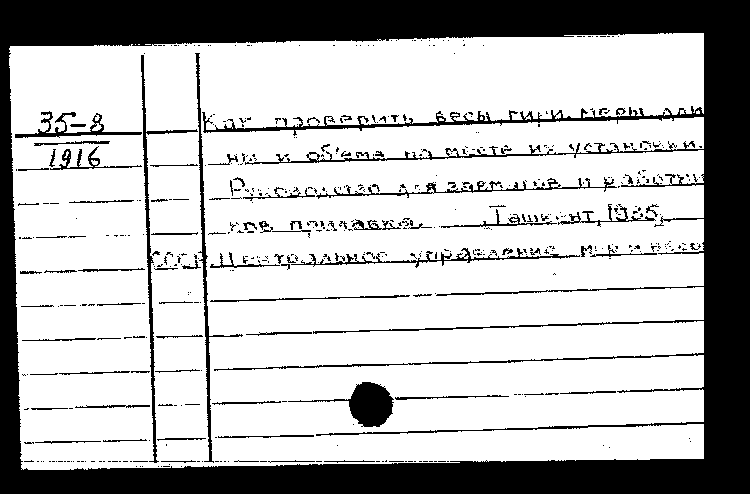 35-8
1916
Как проверить весы, гири, меры дли
ны и об'ема на месте их установки.
Руководство для завмагов и работни
ков прилавка. Ташкент, 1935,
СССР. Центральное управление мер и весов